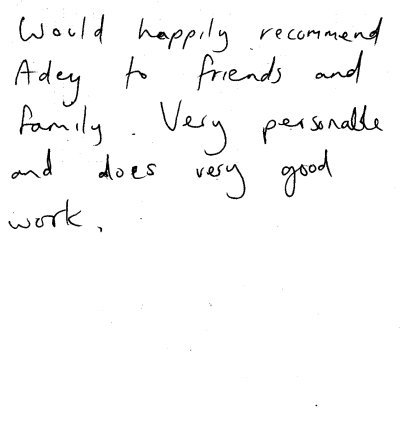 Would happily recommend
Adey to friends and
family. Very personable
and does very good
work.